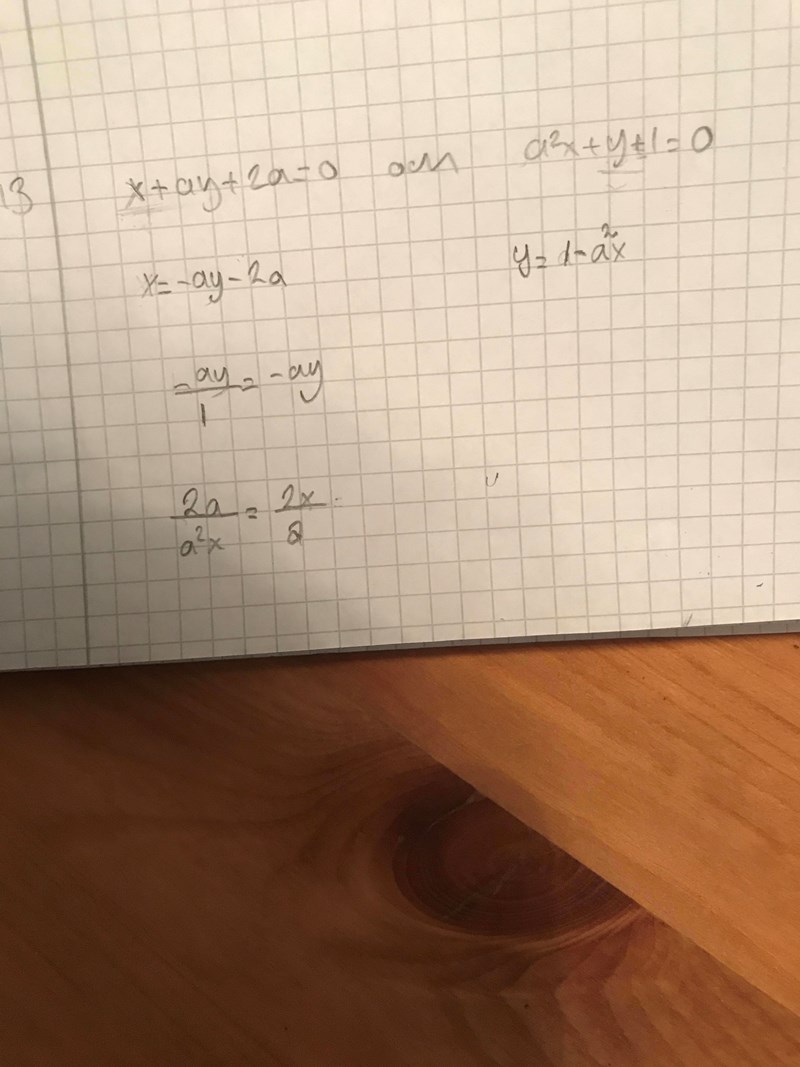 13 x+ay+2a=0 och a²x+y+1=0
x=-ay-2a y=1-a²x
-ay/1=-ay
2a/a²x=2x/a